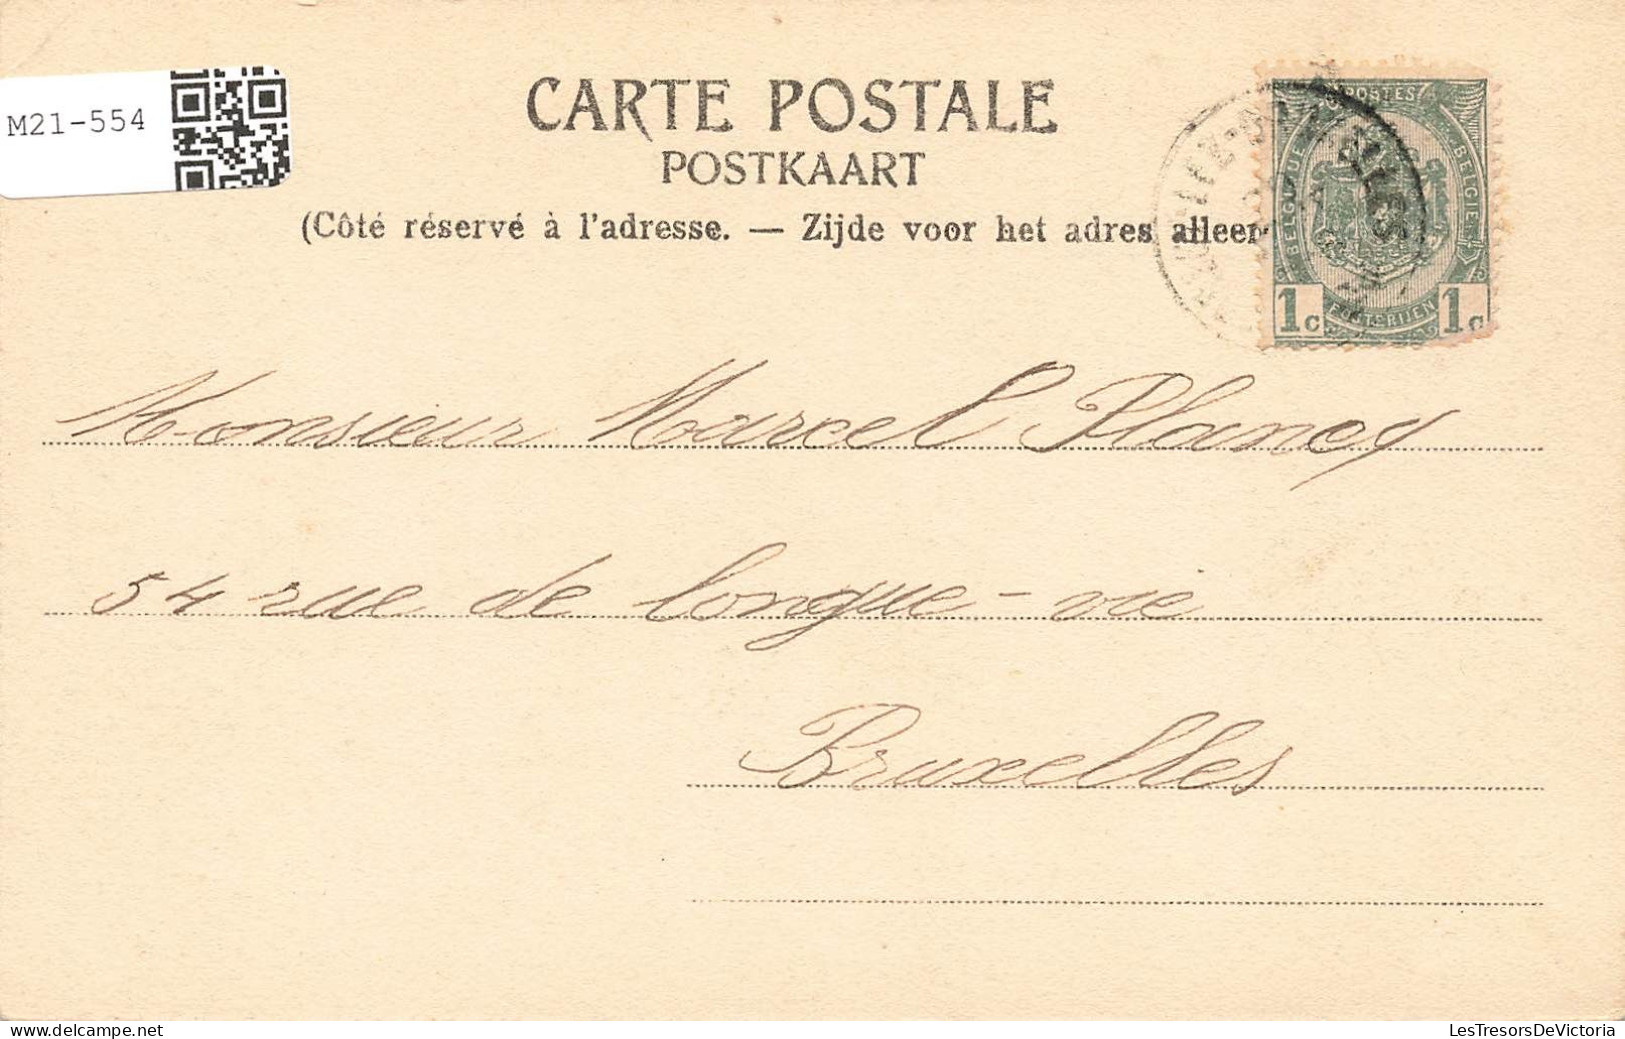 M21-554
CARTE POSTALE
POSTKAART
(Côté réservé à l'adresse. — Zijde voor het adres alleen
POSTES
BELGIQUE
BELGIË
POSTERIJEN
1c 1c
Monsieur Marcel Plancq
54 rue de longue-vie
Bruxelles
LesTresorsDeVictoria
lestresorsdevictoria@live.be